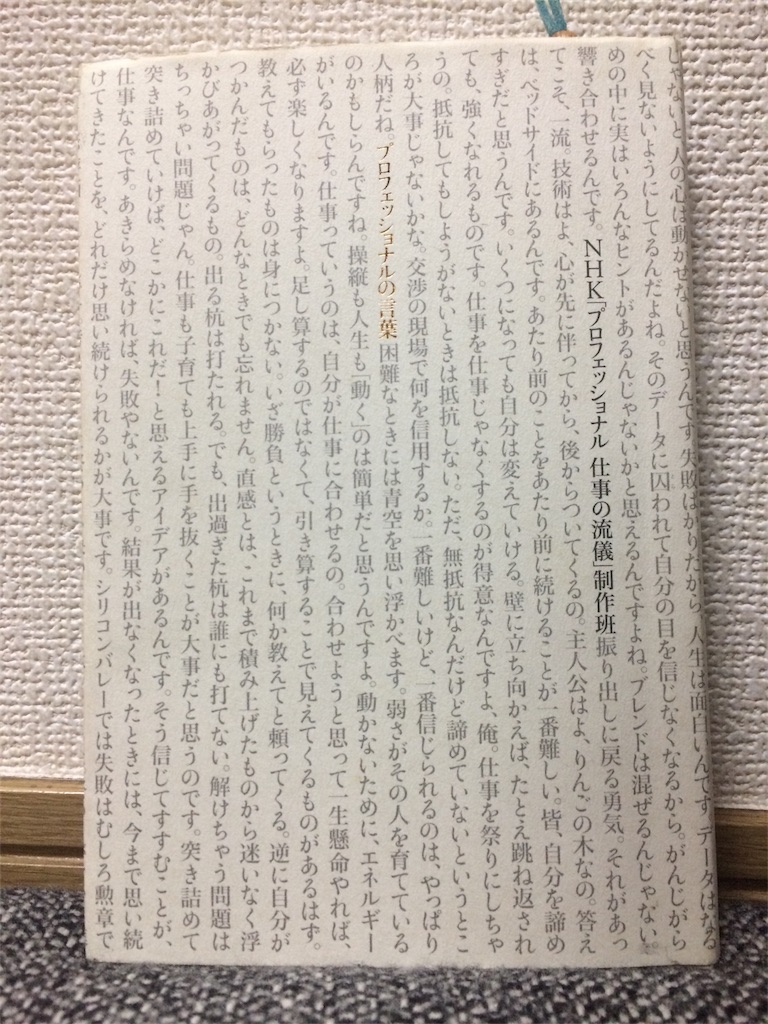 じゃないと人の心は動かせないと思うんです。失敗ばかりだから、人生は面白いんです。データはなる
べく見ないようにしてるんだよね。そのデータに囚われて自分の目を信じなくなるから。がんじがら
めの中に実はいろんなヒントがあるんじゃないかと思えるんですよね。ブレンドは混ぜるんじゃない、
響き合わせるんです。NHK「プロフェッショナル 仕事の流儀」制作班振り出しに戻る勇気。それがあっ
てこそ、一流。技術はよ、心が先に伴ってから、後からついてくるの。主人公はよ、りんごの木なの。答え
は、ベッドサイドにあるんです。あたり前のことをあたり前に続けることが一番難しい。皆、自分を諦め
すぎだと思うんです。いくつになっても自分は変えていける。壁に立ち向かえば、たとえ跳ね返され
ても、強くなれるものです。仕事を仕事じゃなくするのが得意なんですよ、俺。仕事を祭りにしちゃ
うの。抵抗してもしようがないときは抵抗しない。ただ、無抵抗なんだけど諦めていないというとこ
ろが大事じゃないかな。交渉の現場で何を信用するか。一番難しいけど、一番信じられるのは、やっぱり
人柄だね。プロフェッショナルの言葉困難なときには青空を思い浮かべます。弱さがその人を育てている
のかもしらんですね。操縦も人生も「動く」のは簡単だと思うんですよ。動かないために、エネルギー
がいるんです。仕事っていうのは、自分が仕事に合わせるの。合わせようと思って一生懸命やれば、
必ず楽しくなりますよ。足し算するのではなくて、引き算することで見えてくるものがあるはず。
教えてもらったものは身につかない。いざ勝負というときに、何か教えてと頼ってくる。逆に自分が
つかんだものは、どんなときでも忘れません。直感とは、これまで積み上げたものから迷いなく浮
かびあがってくるもの。出る杭は打たれる。でも、出過ぎた杭は誰にも打てない。解けちゃう問題は
ちっちゃい問題じゃん。仕事も子育ても上手に手を抜くことが大事だと思うのです。突き詰めて
突き詰めていけば、どこかにこれだ！と思えるアイデアがあるんです。そう信じてすすむことが、
仕事なんです。あきらめなければ、失敗やないんです。結果が出なくなったときには、今まで思い続
けてきたことを、どれだけ思い続けられるかが大事です。シリコンバレーでは失敗はむしろ勲章で